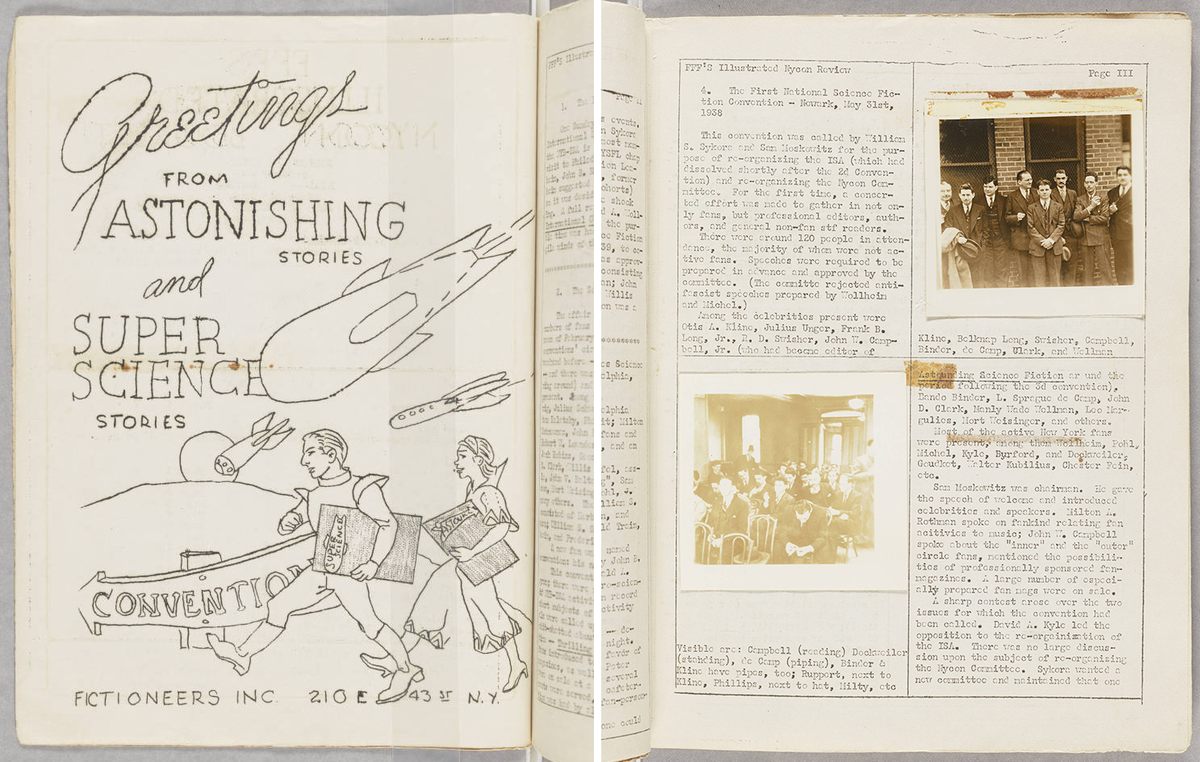 Greetings
FROM
ASTONISHING
STORIES
and
SUPER
SCIENCE
STORIES
SUPER
SCIENCE
CONVENTION
FICTIONEERS INC. 210 E 43 ST N.Y.
FFF'S Illustrated Nycon Review
Page III
4. The First National Science Fic-
tion Convention- Newark, May 31st,
1938
This convention was called by William
S. Sykora and Sam Moskowitz for the pur-
pose of re-organizing the ISA which had
dissolved shortly after the 2d Conven-
tion) and re-organizing the Nycon Com-
mittee. For the first time, a concer-
ted effort was made to gather in not on-
ly fans, but professional editors, auth-
ors, and general non-fan stf readers.
There were around 120 people in atten-
dance, the majority of whom were not ac-
tive fans. Speeches were required to be
prepared in advance and approved by the
committee. (The committe rejected anti-
fascist speeches prepared by Wollheim
and Michel.)
Among the celebrities present were
Otis A. Kline, Julius Unger, Frank B.
Long, Jr., R. D. Swisher, John W. Camp-
bell, Jr. (who had become editor of
Visible are: Campbell (reading) Dockweiler
(standing), de Camp (piping), Binder &
Kline have pipes, too; Ruppert, next to
Kline, Phillips, next to hat, Milty, etc
Kline, Belknap Long, Swisher, Campbell,
Binder, de Camp, Clark, and Wellman
Astounding Science Fiction ar und the
period following the 3d convention).
Eando Binder, L. Sprague de Camp, John
D. Clark, Manly Wade Wellman, Leo Mar-
gulies, Mort Weisinger, and others.
Most of the active New York fans
were present, among them Wollheim, Pohl,
Michel, Kyle, Burford, and Dockweiler,
Goudket, Walter Kubilius, Chester Fein,
etc.
Sam Moskowitz was chairman. He gave
the speech of welcome and introduced
celebrities and speakers. Milton A.
Rothman spoke on fankind relating fan
acitivies to music; John W. Campbell
spoke about the "inner" and the "outer"
circle fans, mentioned the possibili-
ties of professionally sponsored fan-
magazines. A large number of especi-
ally prepared fan mags were on sale.
A sharp contest arose over the two
issues for which the convention had
been called. David A. Kyle led the
opposition to the re-organization of
the ISA. There was no large discus-
sion upon the subject of re-organizing
the Nycon Committee. Sykora wanted a
new committee and maintained that one